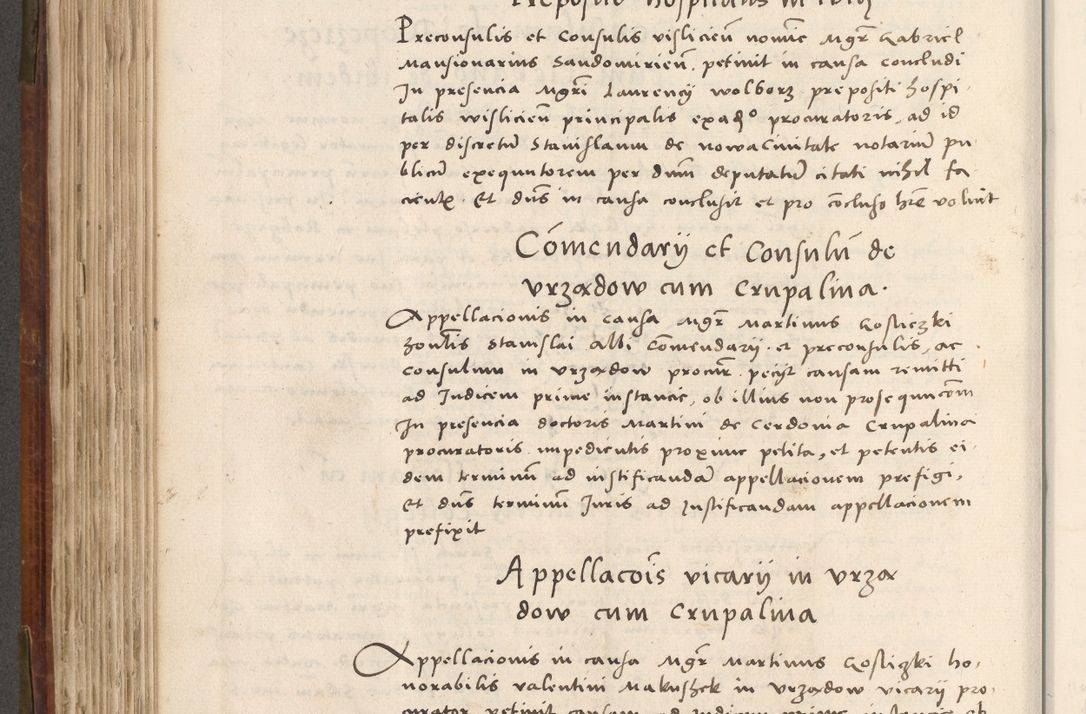 Preconsulis et Consulis vislicień nomine Mgr̃ Gabriel
Mansionarius Sandomirień, petivit in causa Concludi
In presencia Mgr̃i Laurencÿ wolborz prepositi hospi-
talis wislicień principalis procuratoris, ad id
per discretũ Stanislaum de nowa Civitate notariũ pu-
blicũ exequutorem per dnm̃ deputatũ citati nihil fa-
cientx. Et dñs in causa conclusit et pro cõcluso hrẽ voluit
Cõmendarÿ et Consulũ de
vrzadow cum Crupalina.
Appellacionis in Causa Mgr̃ Martinus Gosliczki
honl̃is Stanislai Albi Cõmendarÿ. et preconsulis, ac
Consulum in vrzadow procur̃. petÿt causam remitti
ad Judicem prime instancie, ob illius non prosequucõm
In presencia doctoris Martini de Cerdonia Crupalina
procuratoris impedientis proxime petita, et petentis ei-
dem terminũ ad iustificandã appellacionem prefigi,
Et dñs terminũ Juris ad Justificandam appellacionem
prefixit
Appellacõis vicarÿ in vrza
dow cum Crupalina
Appellacionis in causa Mgr̃ Martinus Gosliczki ho-
norabilis valentini Makushek in vrzadow vicarÿ pro-
curator petivit causam ad Judicem prime instancie ob